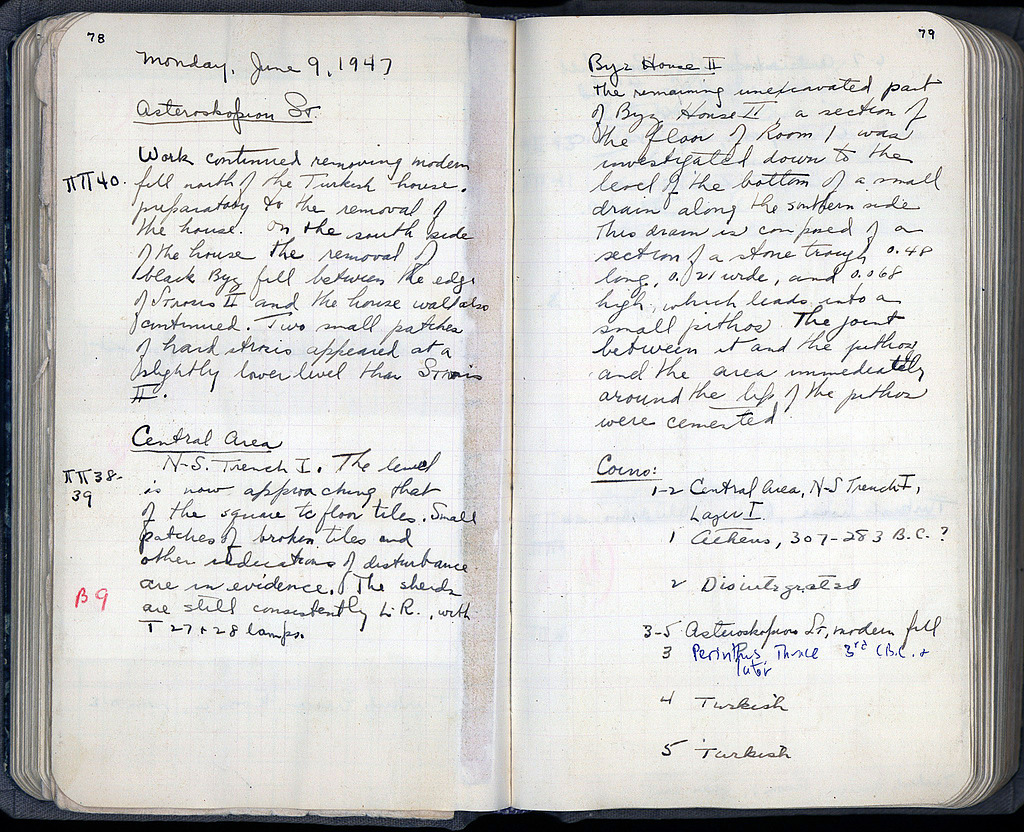 78
Monday, June 9, 1947
Asteroskopion St.
Work continued removing modern
ΠΠ40. fill north of the Turkish house,
preparatory to the removal of
the house. On the south side
of the house the removal of
black Byz fill between the edge
of Strosis II and the house wall also
continued. Two small patches
of hard strosis appeared at a
slightly lower level than Strosis
II.
Central Area
N-S. Trench I. The level
ΠΠ38-
39
is now approaching that
of the square tc floor tiles. Small
patches of broken tiles and
other indications of disturbance
are in evidence. The sherds
B9
are still consistently L.R., with
T 27 + 28 lamps.
79
Byz House II
the remaining unexcavated part
of Byz House II, a section of
the floor of Room 1 was
investigated down to the
level of the bottom of a small
drain along the southern side
This drain is composed of a
section of a stone trough, 0.48
long, 0.21 wide, and 0.068
high, which leads into a
small pithos. The joint
between it and the pithos,
and the area immediately
around the lip of the pithos
were cemented
Coins:
1-2 Central Area, N-S Trench I,
Layer I.
1 Athens, 307-283 B.C.?
2 Disintegrated
3-5 Asteroskopion St, modern fill
3 Perinthus Thrace 3rd C B.C. +
later
4 Turkish
5 Turkish